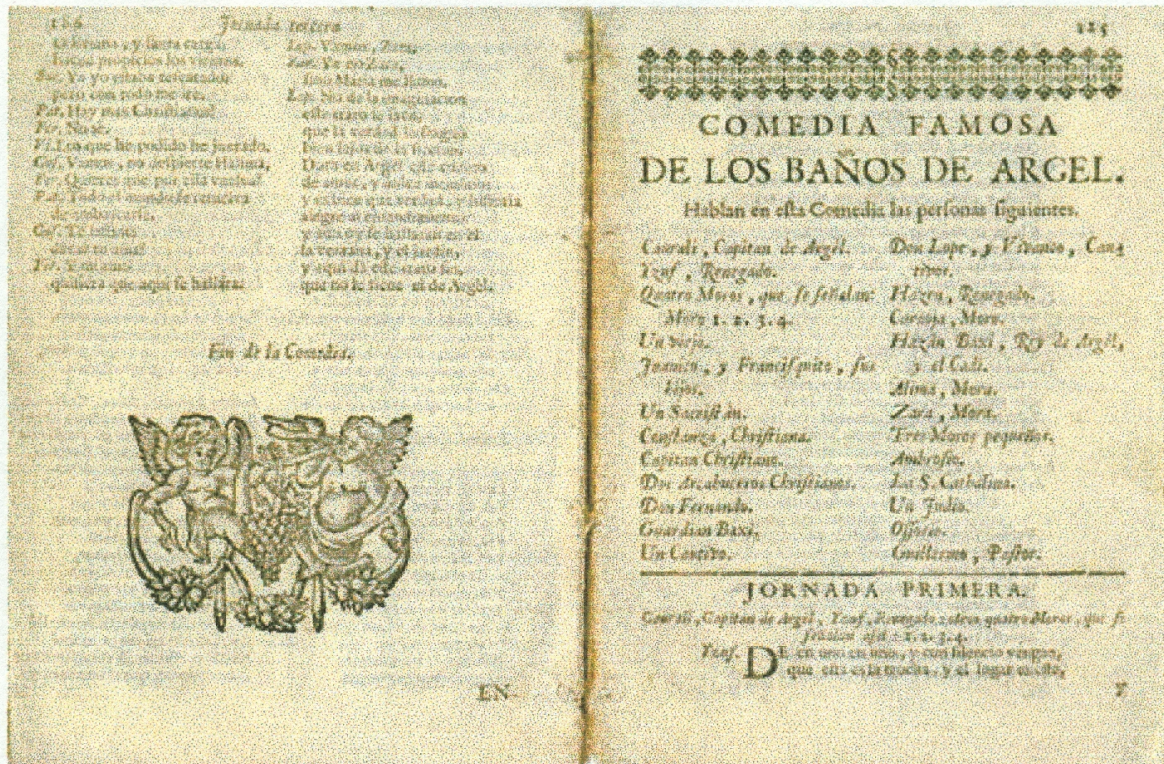 186 Jornada tercera
hagan propicios los vientos.
pero con todo
Pat. Hay mas Christianos?
Fer. No se.
Vi. Lo que he podido he juntado.
Cau. Vamos, no despierte Hazen,
Fer. Quieres que por ella vuelva?
Pat. Todo el mundo se
de embarcarse.
quisiera que aqui se hallara.
Lop. Vamos, Zara.
Zar. Ya no Zara,
sino Maria me llamo.
Lop. No de la imaginacion
este trato se saco,
que la verdad lo fraguó
bien lejos de la ficcion.
Dura en Argel este cuento
de amor, y dulce memoria,
y es bien que verdad, y historia
alegre al entendimiento.
y aun oy se hallaran en él
la ventana, y el jardin,
y aqui da este trato fin,
que no le tiene el de Argel.
Fin de la Comedia.
EN
COMEDIA FAMOSA
DE LOS BAÑOS DE ARGEL.
Hablan en esta Comedia las personas siguientes.
Caurali, Capitan de Argel.
Yzuf, Renegado.
Quatro Moros, que se señalan:
Moro 1. 2. 3. 4.
Un viejo.
Juanico, y Francisquito, sus
hijos.
Un Sacristán.
Constanza, Christiana.
Capitan Christiano.
Dos Arcabuceros Christianos.
Don Fernando.
Guardian Baxi.
Un Cautivo.
Don Lope, y Vivanco, Cau-
tivos.
Hazen, Renegado.
Carahoja, Moro.
Hazán Baxi, Rey de Argél,
y el Cadi.
Alima, Mora.
Zara, Mora.
Tres Moros pequeños.
Ambrosio.
La S. Cathalina.
Un Judio.
Ossorio.
Guillermo, Pastor.
JORNADA PRIMERA.
Caurali, Capitan de Argel, Yzuf, Renegado, otros quatro Moros, que se
señalan asi: 1. 2. 3. 4.
Yzuf. DE en uno en uno, y con silencio vengan,
que esta es la trocha, y el lugar es este,